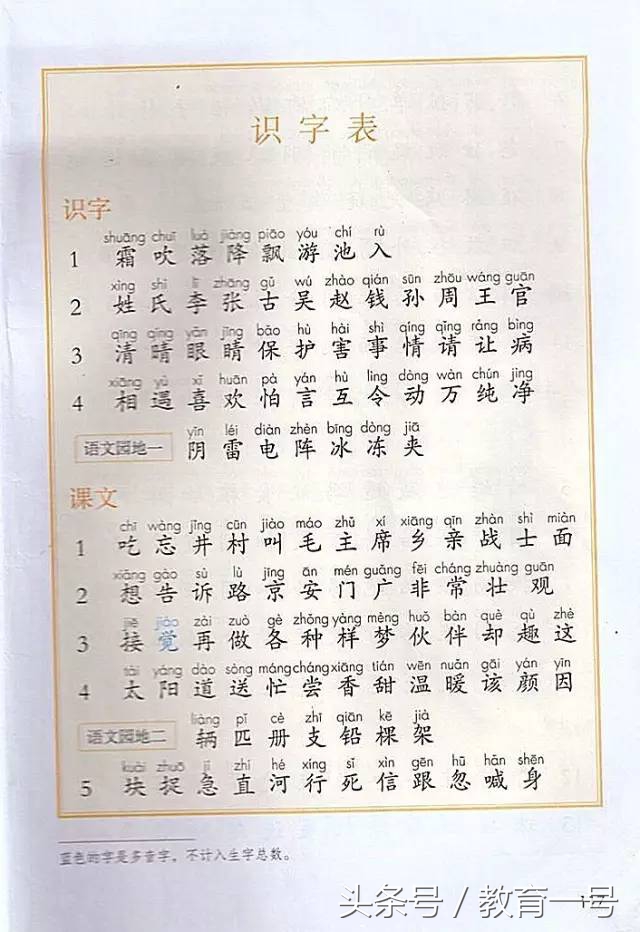 识字表
识字
shuāng chuī luò jiàng piāo yóu chí rù
1 霜 吹 落 降 飘 游 池 入
xìng shì lǐ zhāng gǔ wú zhào qián sūn zhōu wáng guān
2 姓 氏 李 张 古 吴 赵 钱 孙 周 王 官
qīng qíng yǎn jīng bǎo hù hài shì qíng qǐng ràng bìng
3 清 晴 眼 睛 保 护 害 事 情 请 让 病
xiāng yù xǐ huān pà yán hù lìng dòng wàn chún jìng
4 相 遇 喜 欢 怕 言 互 令 动 万 纯 净
yīn léi diàn zhèn bīng dòng jiā
语文园地一 阴 雷 电 阵 冰 冻 夹
课文
chī wàng jǐng cūn jiào máo zhǔ xí xiāng qīn zhàn shì miàn
1 吃 忘 井 村 叫 毛 主 席 乡 亲 战 士 面
xiǎng gào sù lù jīng ān mén guǎng fēi cháng zhuàng guān
2 想 告 诉 路 京 安 门 广 非 常 壮 观
jiē jiào zài zuò gè zhǒng yàng mèng huǒ bàn què qù zhè
3 接 觉 再 做 各 种 样 梦 伙 伴 却 趣 这
tài yáng dào sòng máng cháng xiāng tián wēn nuǎn gāi yán yīn
4 太 阳 道 送 忙 尝 香 甜 温 暖 该 颜 因
liàng pǐ cè zhī qiān kē jià
语文园地二 辆 匹 册 支 铅 棵 架
kuài zhuō jí zhí hé xíng sǐ xìn gēn hū hǎn shēn
5 块 捉 急 直 河 行 死 信 跟 忽 喊 身
蓝色的字是多音字，不计入生字总数。
头条号 / 教育一号